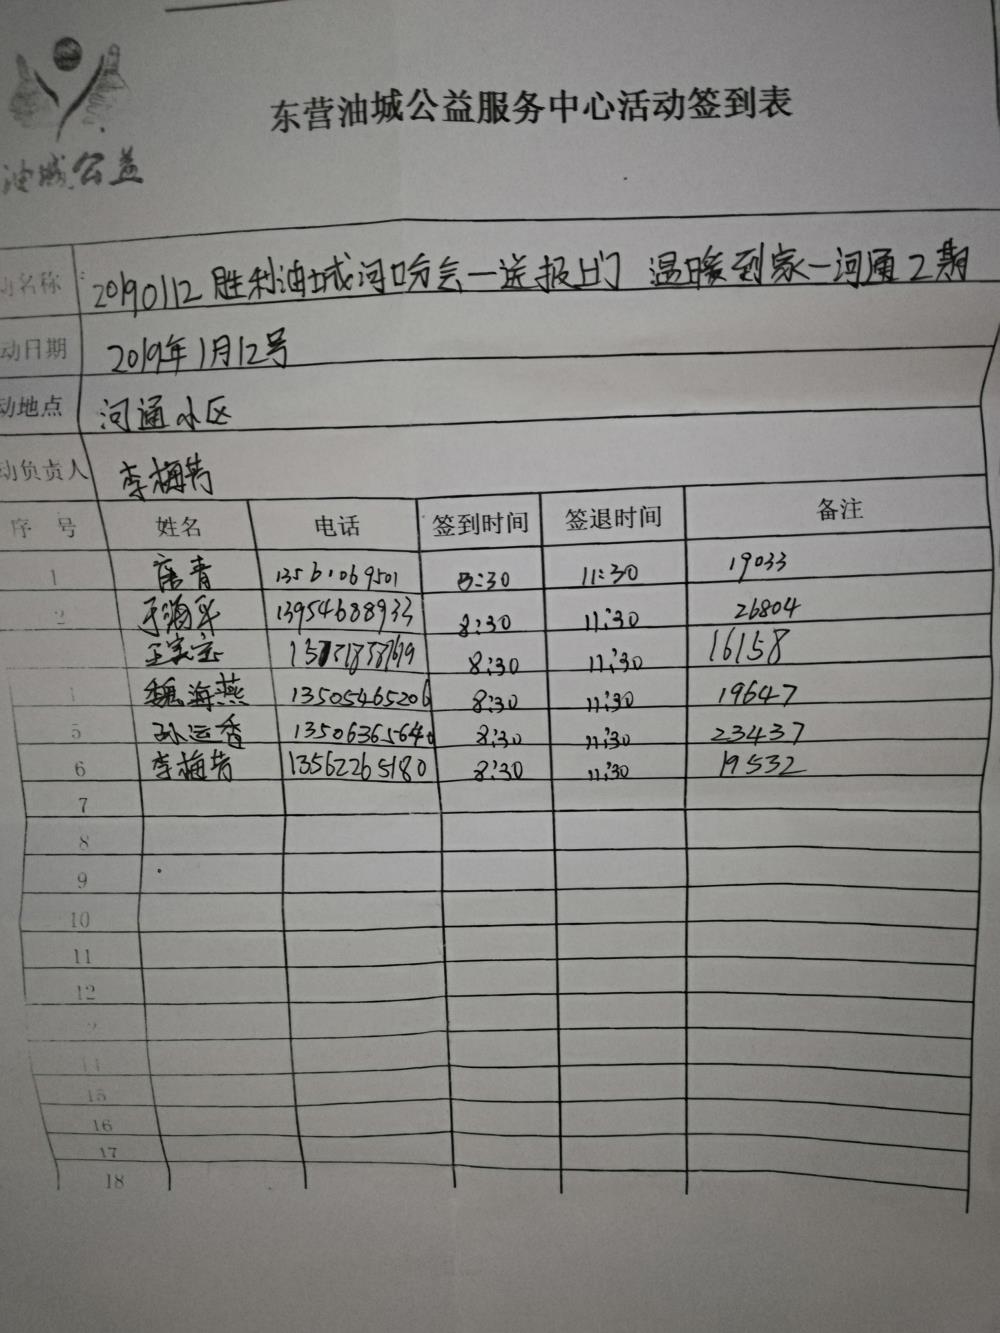 油城公益
东营油城公益服务中心活动签到表
动名称 20190112胜利油城河口分会一送报上门 温暖到家一河通2期
动日期 2019年1月12号
动地点 河通小区
动负责人 李梅芳
序号 姓名 电话 签到时间 签退时间 备注
1 唐青 13561069501 8:30 11:30 19033
2 13954688933 8:30 11:30 26804
8:30 11:30 16158
魏海燕 13505465206 8:30 11:30 19647
5 孙运香 8:30 11:30 23437
6 李梅芳 13562265180 8:30 11:30 19532
7
8
9
10
11
12
14
15
16
17
18